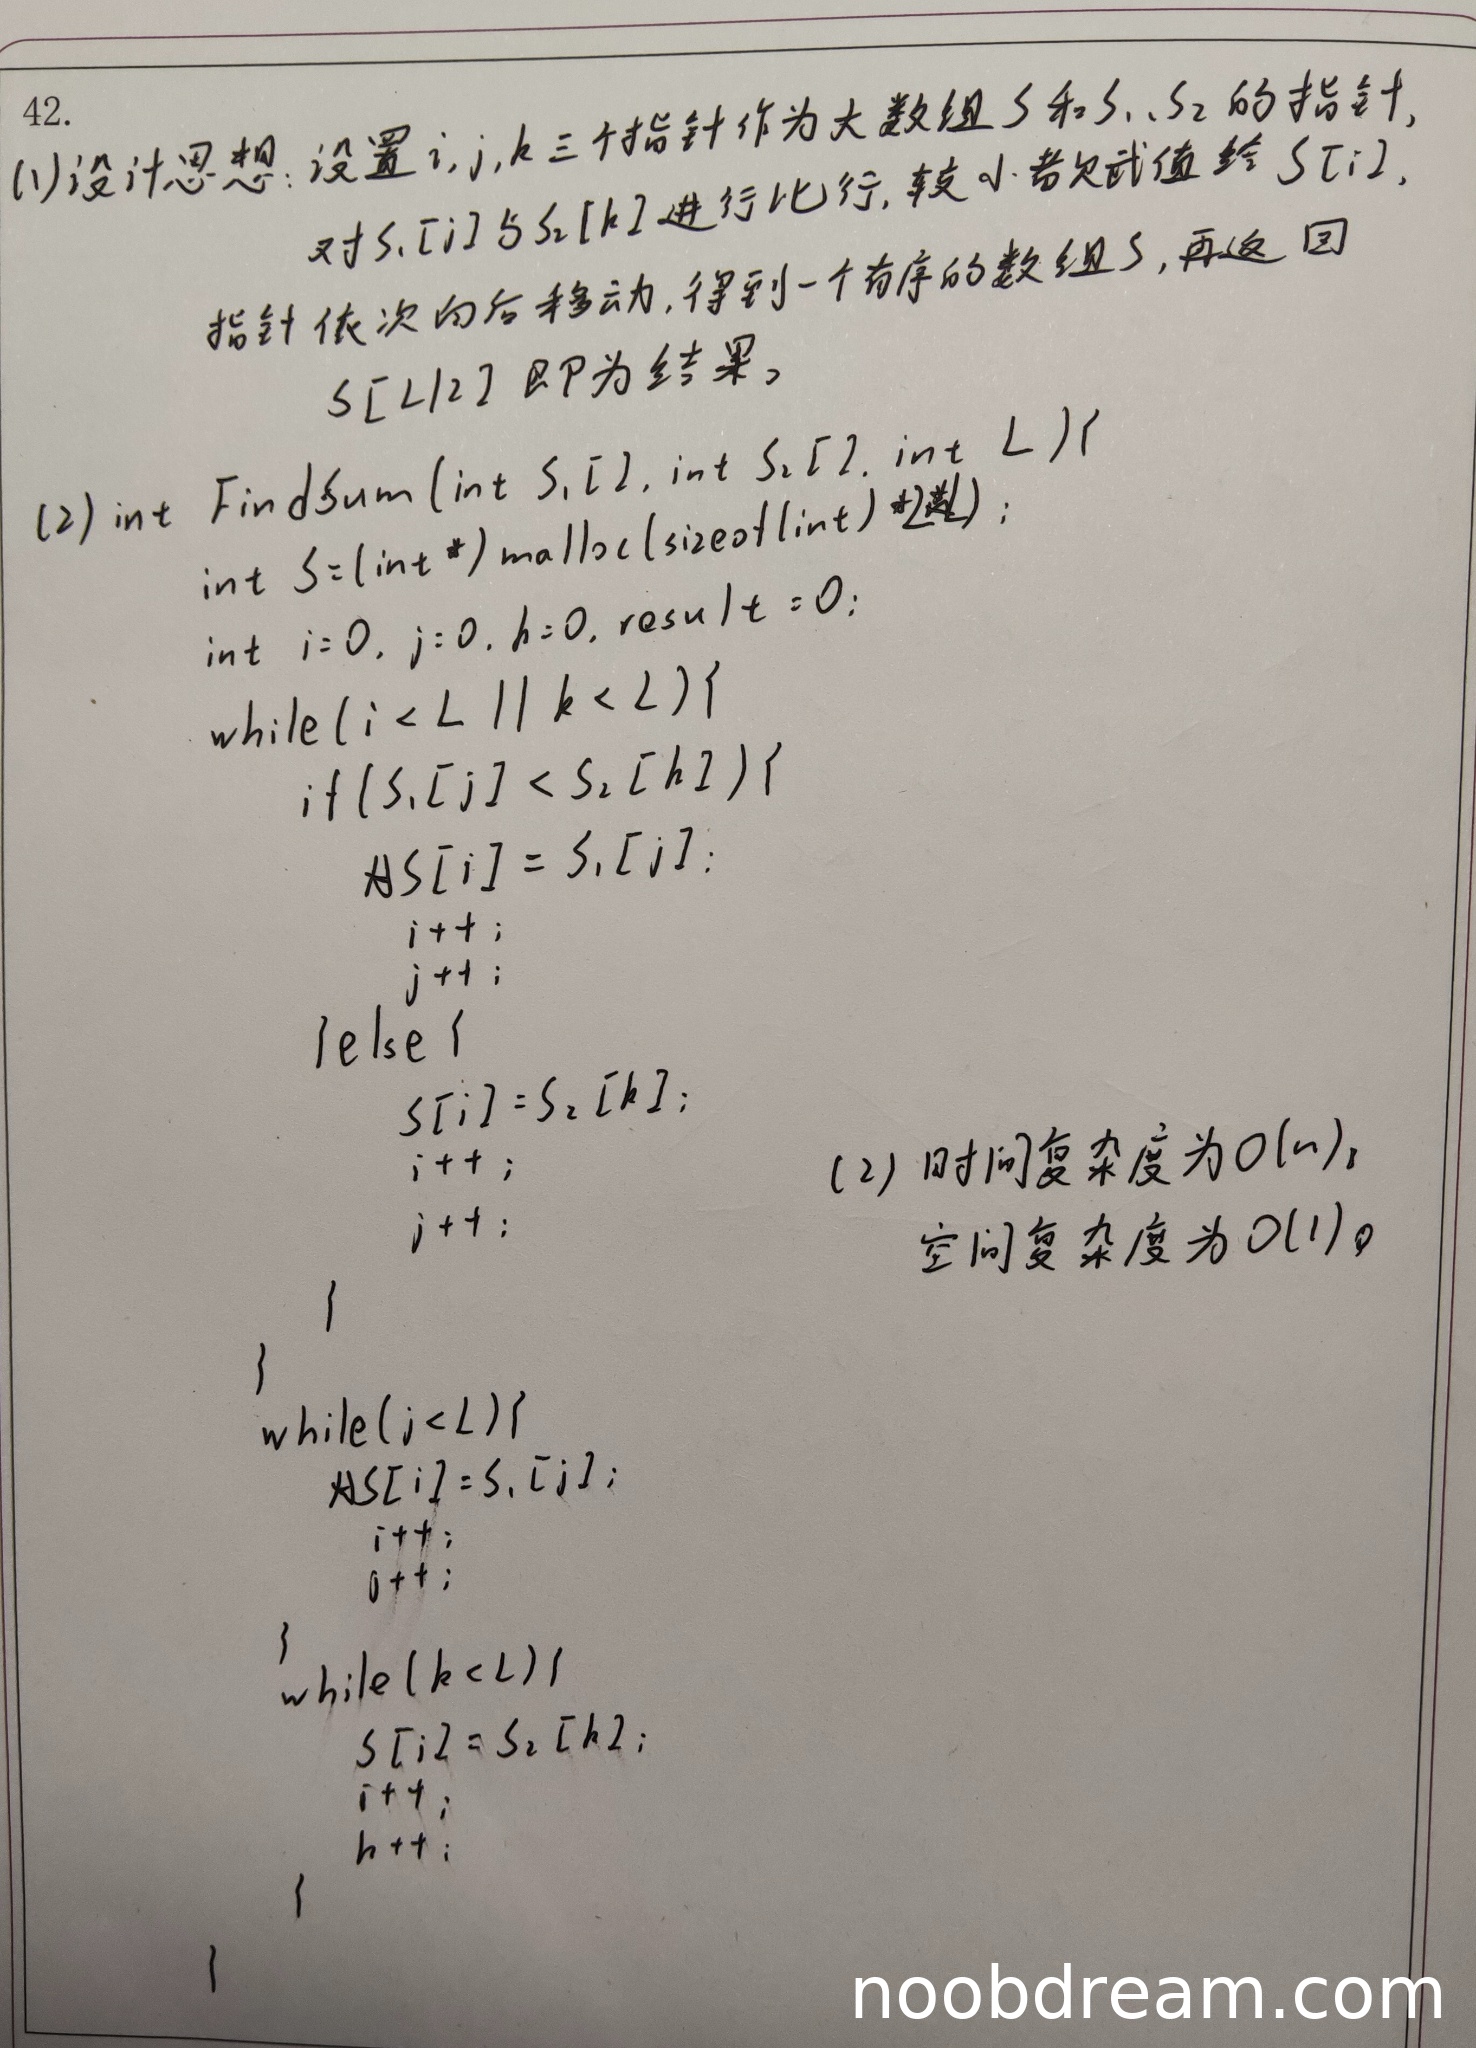 42.
(1)设计思想:设置i,j,k三个指针作为大数组S和S₁、S₂的指针,
对S₁[j]与S₂[k]进行比行,较小者欠武值给S[i],
指针依次向后移动,得到一个有序的数组S,再返回
S[L/2]即为结果。
(2) int FindSum(int S₁[], int S₂[], int L){
int S=(int*)malloc(sizeof(int)*);
int i=0, j=0, k=0, result=0;
while(i<L || k<L){
if(S₁[j] < S₂[k]){
S[i] = S₁[j];
i++;
j++;
}else{
S[i]=S₂[k];
i++;
j++;
}
}
while(j<L){
S[i]=S₁[j];
i++;
j++;
}
while(k<L){
S[i]=S₂[k];
i++;
k++;
}
}
(2) 时间复杂度为O(n),
空间复杂度为O(1)。
noobdream.com